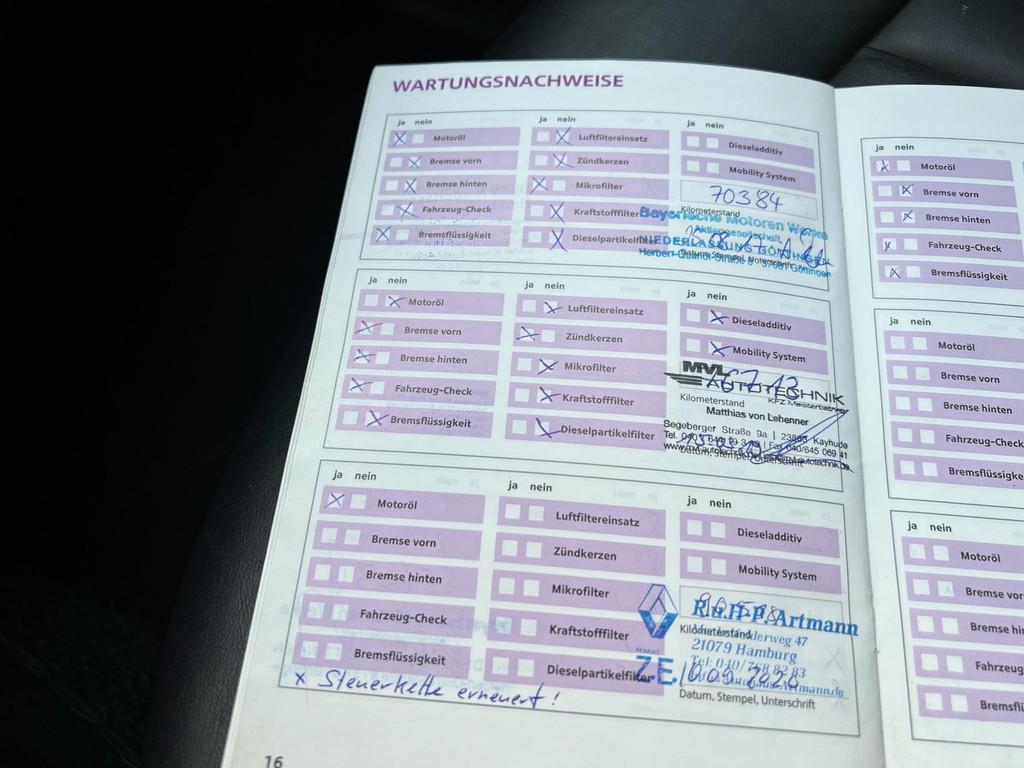 WARTUNGSNACHWEISE
ja nein
Motoröl
Bremse vorn
Bremse hinten
Fahrzeug-Check
Bremsflüssigkeit
ja nein
Luftfiltereinsatz
Zündkerzen
Mikrofilter
Kraftstofffilter
Dieselpartikelfilter
ja nein
Dieseladditiv
Mobility System
70384
Kilometerstand
Bayerische Motoren Werke
Aktiengesellschaft
NIEDERLASSUNG GÖTTINGEN
Datum, Stempel, Unterschrift
ja nein
Motoröl
Bremse vorn
Bremse hinten
Fahrzeug-Check
Bremsflüssigkeit
ja nein
Luftfiltereinsatz
Zündkerzen
Mikrofilter
Kraftstofffilter
Dieselpartikelfilter
ja nein
Dieseladditiv
Mobility System
MVL
AUTOTECHNIK
KFZ Meisterbetrieb
Kilometerstand
Matthias von Lehenner
Segeberger Straße 9a | Kayhude
Datum, Stempel, Unterschrift
ja nein
Motoröl
Bremse vorn
Bremse hinten
Fahrzeug-Check
Bremsflüssigkeit
x Steuerkette erneuert!
ja nein
Luftfiltereinsatz
Zündkerzen
Mikrofilter
Kraftstofffilter
Dieselpartikelfilter
ja nein
Dieseladditiv
Mobility System
R.u.H-P. Artmann
Kilometerstand
21079 Hamburg
RENAULT
Z.E.
10.09.2020
Datum, Stempel, Unterschrift
16
ja nein
Motoröl
Bremse vorn
Bremse hinten
Fahrzeug-Check
Bremsflüssigkeit
ja nein
Motoröl
Bremse vorn
Bremse hinten
Fahrzeug-Check
Bremsflüssigke
ja nein
Motoröl
Bremse vor
Bremse hin
Fahrzeug
Bremsflü